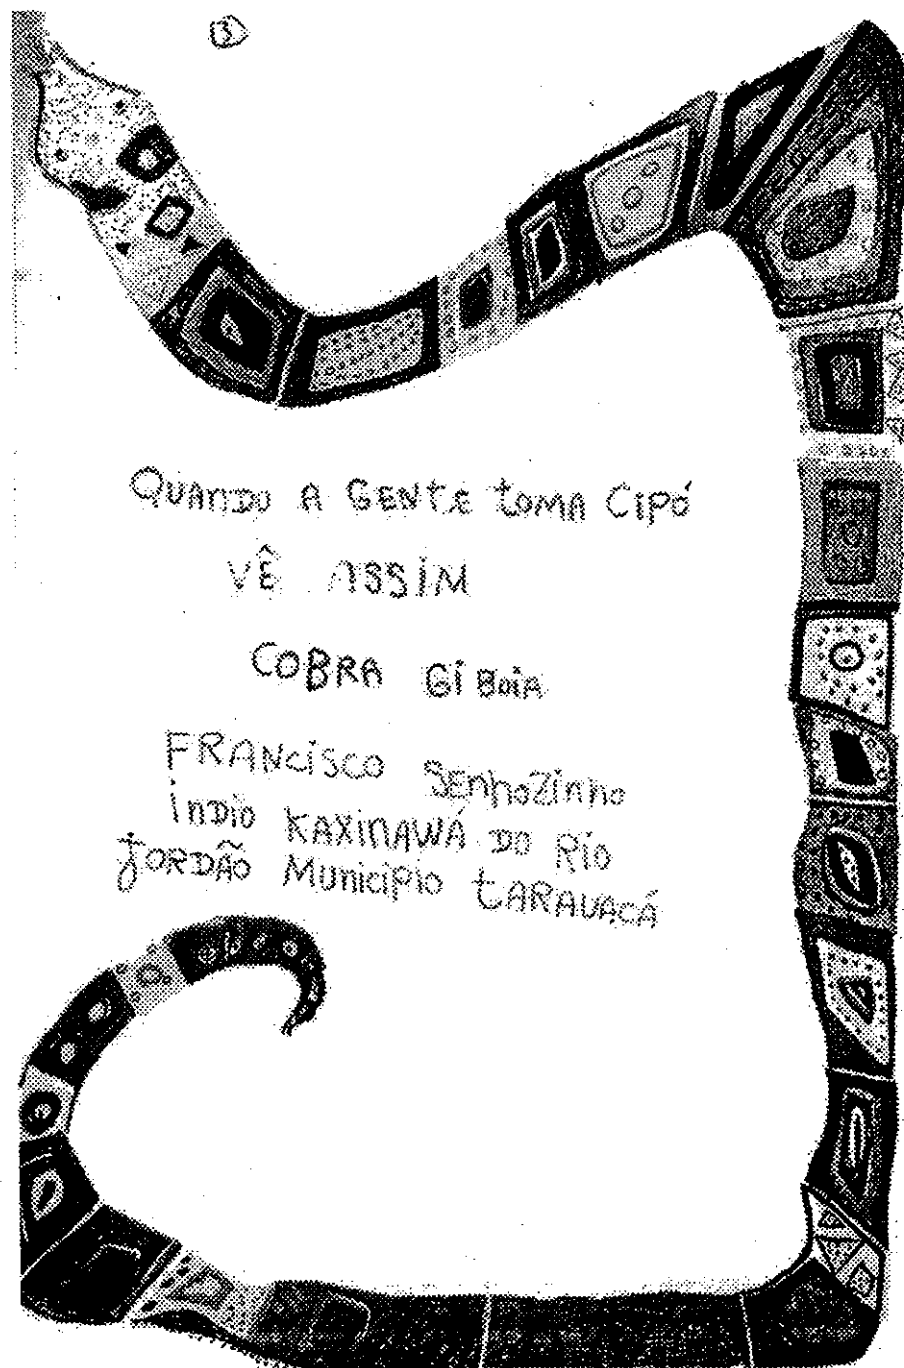 3
QUANDO A GENTE TOMA CIPÓ
VÊ ASSIM
COBRA GIBOIA
FRANCISCO SENHOZINHO
INDIO KAXINAWÁ DO RIO
JORDÃO MUNICIPIO TARAUACÁ